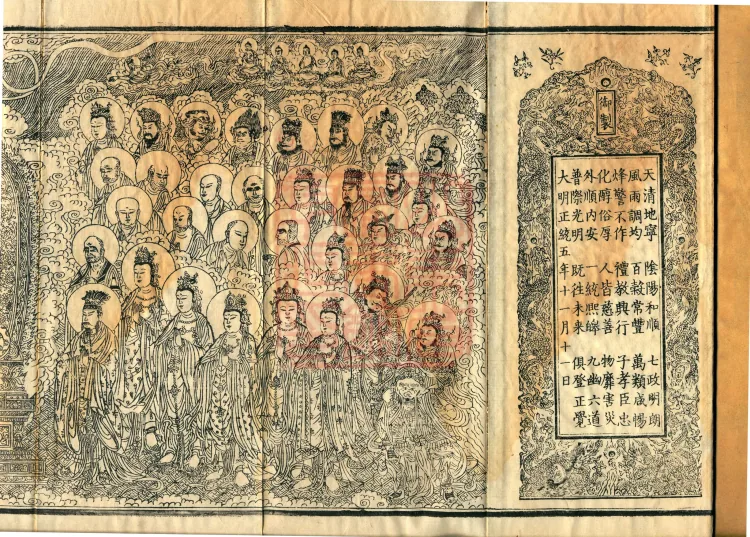 御製
天清地寧　陰陽和順　七政明朗
風雨調均　百穀常豐　萬類咸暢
烽警不作　禮教興行　子孝臣忠
化醇俗厚　人皆慈善　物靡害災
外順内安　一統熙皞　九幽六道
普際光明　既往未來　俱登正覺
大明正統五年十一月十一日